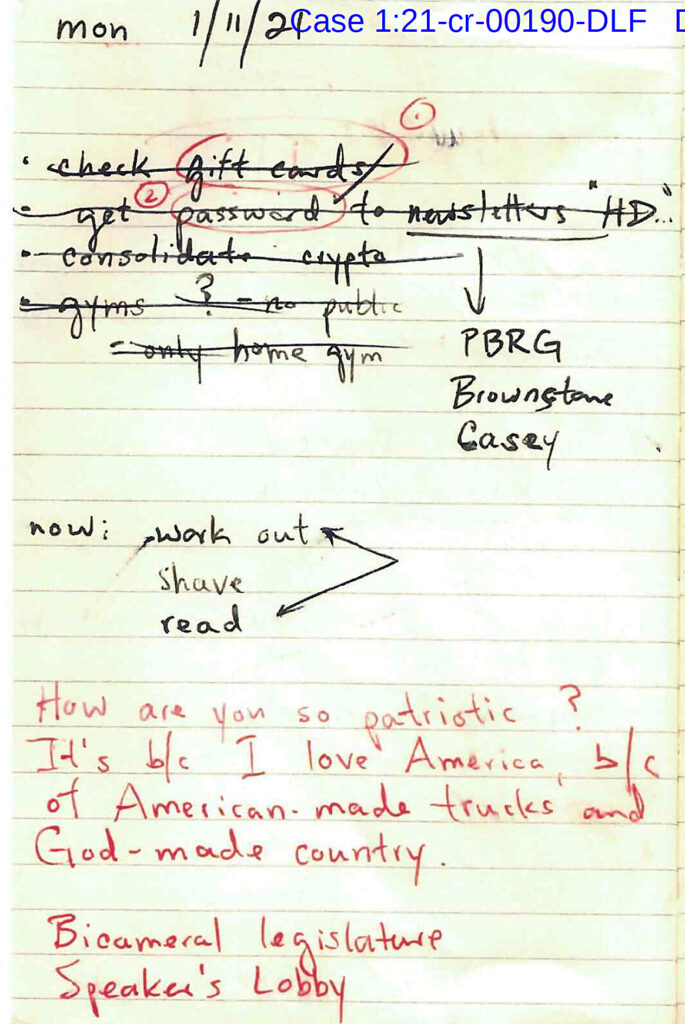 mon 1/11/21 Case 1:21-cr-00190-DLF
①
· check gift cards
· get ② password to newsletters "HD..."
· consolidate crypto
· gyms ? - no public
- only home gym
PBRG
Brownstone
Casey
now: work out
shave
read
How are you so patriotic ?
It's b/c I love America, b/c
of American-made trucks and
God-made country.
Bicameral legislature
Speaker's Lobby